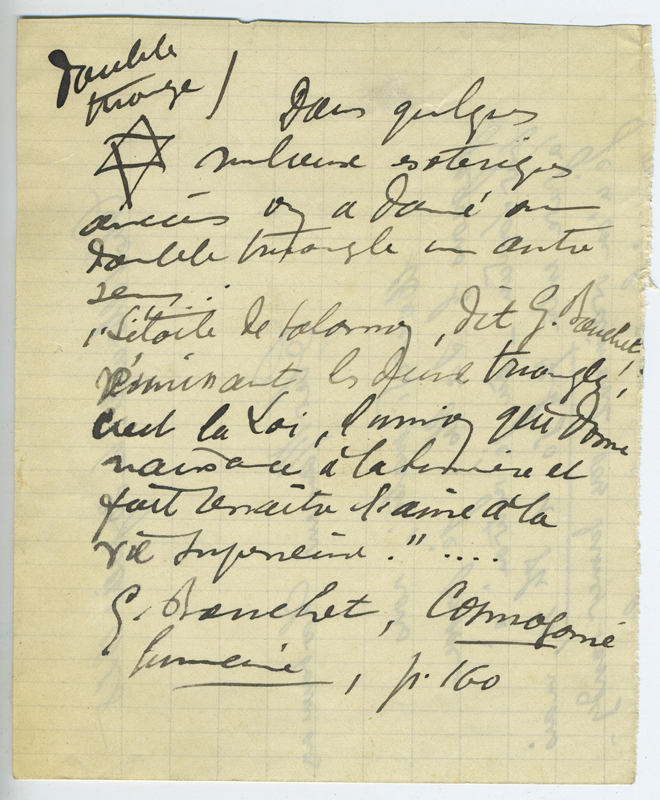 Double
triangle /
Dans quelques
milieux esotériques
anciens on a donné au
double triangle un autre
sens...
"L'étoile de Salomon, dit G. Bouchet,
réunissant les deux triangles,
c'est la Loi, l'union qui donne
naissance à la lumière et
fait renaître l'âme à la
vie superieure." ....
G. Bouchet, Cosmogonie
humaine, p. 160